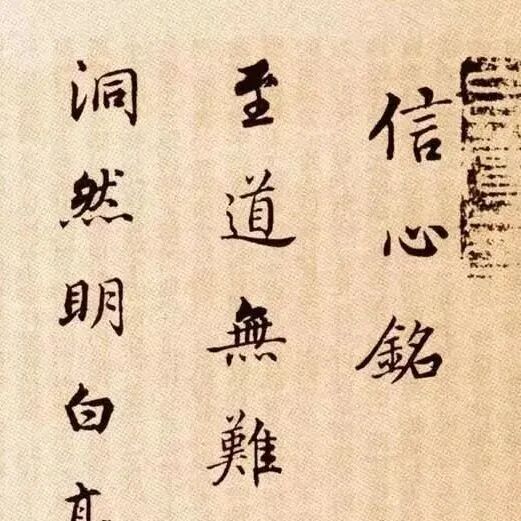 信心銘
至道無難
洞然明白